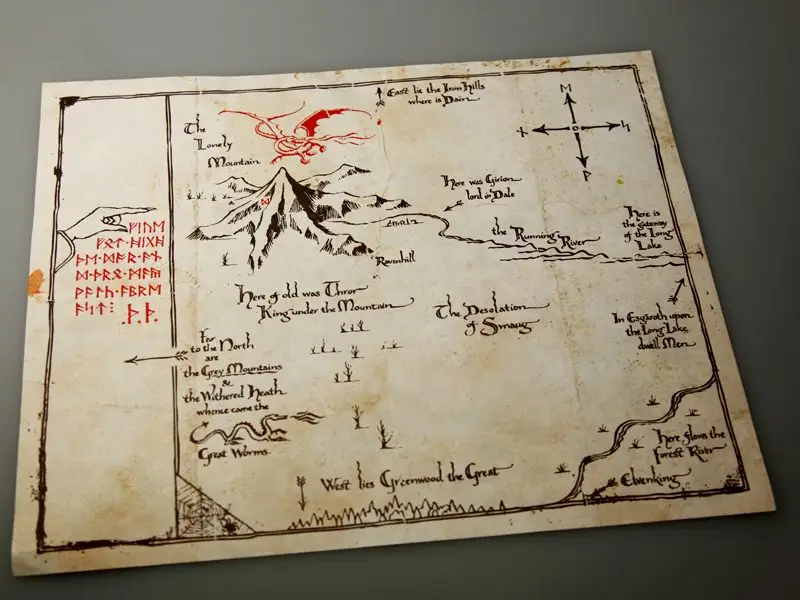 East lie the Iron Hills
where is Dain
The
Lonely
Mountain
ᛖ
ᚾ
ᛋ
ᚹ
ᛞ
Here was Girion
lord in Dale
Here is
the gateway
of the Long
Lake
the Running River
Ravenhill
ᚠᛁᚢᛖ
ᚠᚩᛏ᛫ᚻᛁᚷᚻ
ᚦᛖ᛫ᛞᚩᚱ᛫ᚪᚾ
ᛞ᛫ᚦᚱᛁ᛫ᛗᚪᚣ
ᚹᚪᛚᚳ᛫ᚪᛒᚱᛖ
ᚪᛋᛏ᛬
ᚦ᛫ᚦ᛫
Here of old was Thror
King under the Mountain
The Desolation
of Smaug
In Esgaroth upon
the Long Lake
dwell Men
Far
to the North
are
the Grey Mountains
&
the Withered Heath
whence came the
Great Worms
Here flows the
Forest River
West lies Greenwood the Great
Elvenking